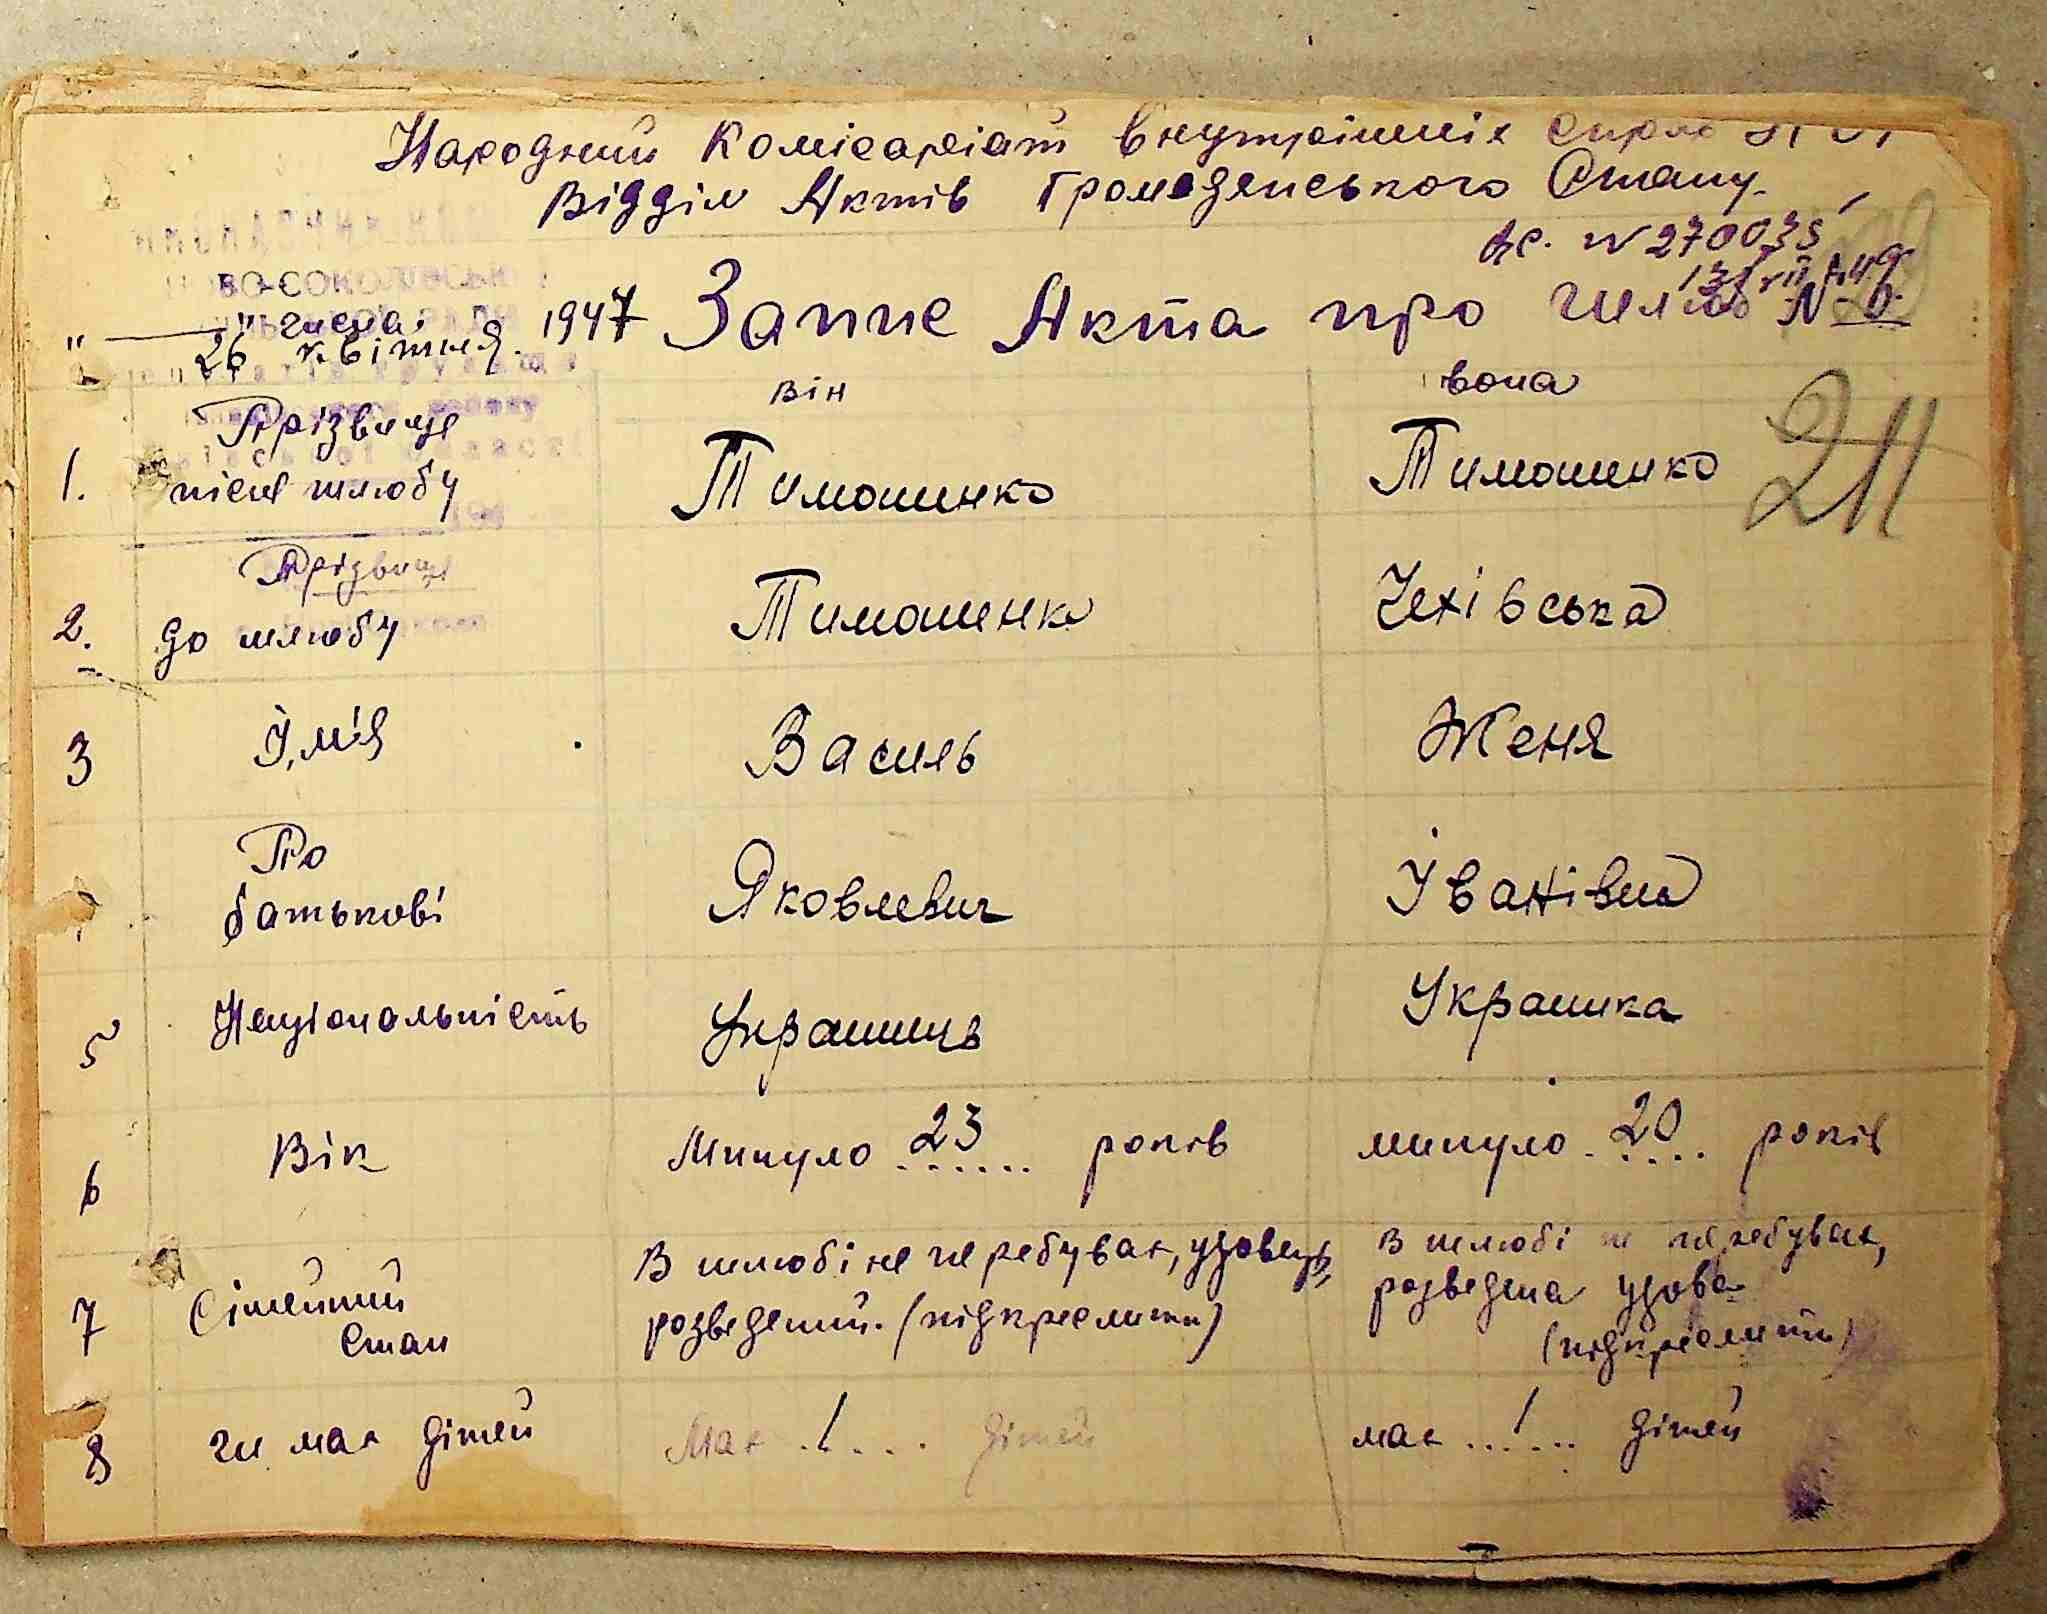 Народний Комісаріат внутрішніх справ
Відділ Актів Громадянського Стану.
вс. № 270035
"——" числа.
26 квітня. 1947 Запис Акта про шлюб № 6.
він вона
1. Прізвище після шлюбу Тимошинко Тимошинко
211
2. Прізвище до шлюбу Тимошенко Чехівська
3 Їм'я Василь Женя
По батькові Яковлевич Іванівна
5 Національність Українець Українка
6 Вік Минуло 23 років минуло 20 років
7 Сімейний Стан В шлюбі не перебуває, удовець, розведений. (підкреслити) В шлюбі не перебуває, розведена удова (підкреслити)
8 чи має дітей Має ..!.... дітей має ...!... дітей